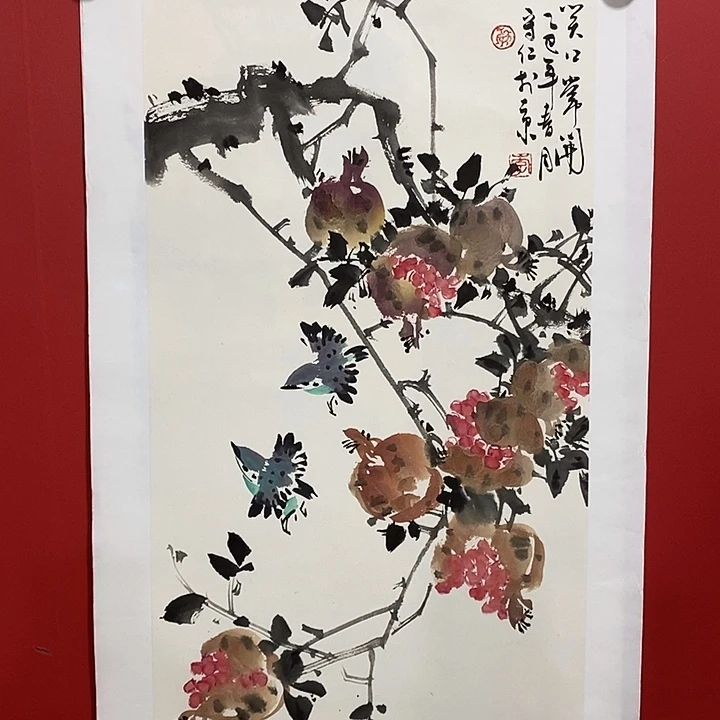 笑口常開
乙巳年春月
守仁於京